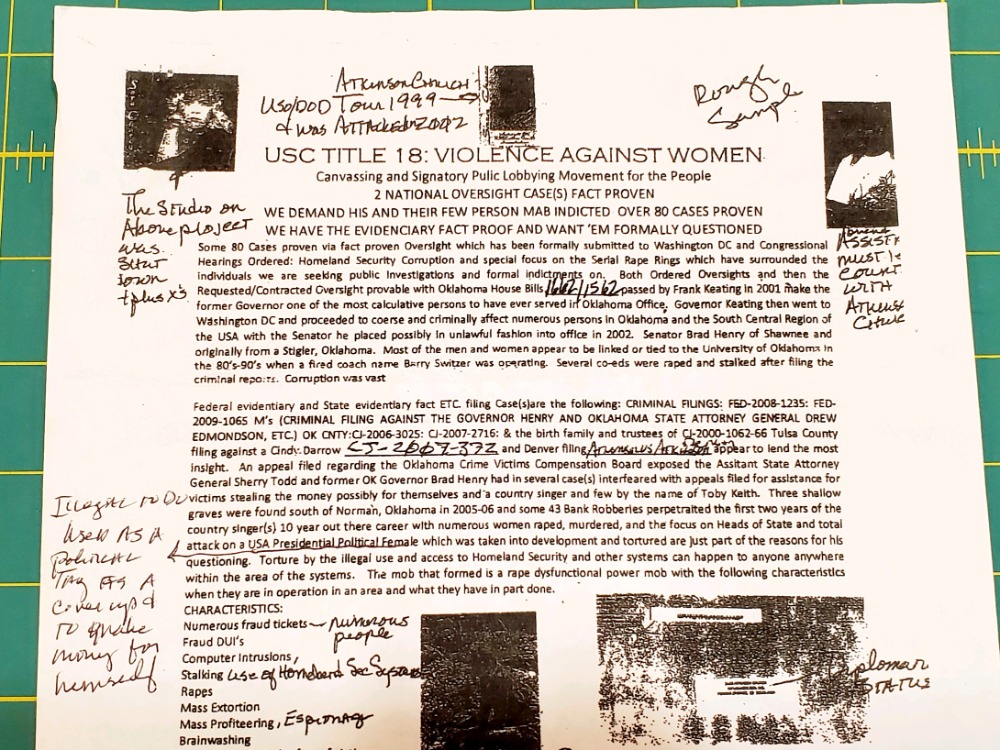 Atkinson Church
USO/DOD Tour 1999 →
& was Attacked in 2002
Rough
Sample
USC TITLE 18: VIOLENCE AGAINST WOMEN
Canvassing and Signatory Pulic Lobbying Movement for the People
2 NATIONAL OVERSIGHT CASE(S) FACT PROVEN
WE DEMAND HIS AND THEIR FEW PERSON MAB INDICTED OVER 80 CASES PROVEN
WE HAVE THE EVIDENCIARY FACT PROOF AND WANT 'EM FORMALLY QUESTIONED
The Studio on
Above project
was
Shut
down
+ plus x's
Assist
must
count
with
Some 80 Cases proven via fact proven Oversight which has been formally submitted to Washington DC and Congressional
Hearings Ordered: Homeland Security Corruption and special focus on the Serial Rape Rings which have surrounded the
individuals we are seeking public Investigations and formal indictments on. Both Ordered Oversights and then the
Requested/Contracted Oversight provable with Oklahoma House Bills 1662/1562 passed by Frank Keating in 2001 make the
former Governor one of the most calculative persons to have ever served in Oklahoma Office. Governor Keating then went to
Washington DC and proceeded to coerse and criminally affect numerous persons in Oklahoma and the South Central Region of
the USA with the Senator he placed possibly in unlawful fashion into office in 2002. Senator Brad Henry of Shawnee and
originally from a Stigler, Oklahoma. Most of the men and women appear to be linked or tied to the University of Oklahoma in
the 80's-90's when a fired coach name Barry Switzer was operating. Several co-eds were raped and stalked after filing the
criminal reports. Corruption was vast
Federal evidentiary and State evidentiary fact ETC. filing Case(s)are the following: CRIMINAL FILINGS: FED-2008-1235: FED-
2009-1065 M's (CRIMINAL FILING AGAINST THE GOVERNOR HENRY AND OKLAHOMA STATE ATTORNEY GENERAL DREW
EDMONDSON, ETC.) OK CNTY:CJ-2006-3025: CJ-2007-2716: & the birth family and trustees of CJ-2000-1062-66 Tulsa County
filing against a Cindy Darrow CJ-2007-372 and Denver filing appear to lend the most
insight. An appeal filed regarding the Oklahoma Crime Victims Compensation Board exposed the Assitant State Attorney
General Sherry Todd and former OK Governor Brad Henry had in several case(s) interfeared with appeals filed for assistance for
victims stealing the money possibly for themselves and a country singer and few by the name of Toby Keith. Three shallow
graves were found south of Norman, Oklahoma in 2005-06 and some 43 Bank Robberies perpetraited the first two years of the
country singer(s) 10 year out there career with numerous women raped, murdered, and the focus on Heads of State and total
attack on a USA Presidential Political Female which was taken into development and tortured are just part of the reasons for his
questioning. Torture by the illegal use and access to Homeland Security and other systems can happen to anyone anywhere
within the area of the systems. The mob that formed is a rape dysfunctional power mob with the following characteristics
when they are in operation in an area and what they have in part done.
Illegal to Du
Used as a
political
Tag as a
cover up &
to make
money for
himself
CHARACTERISTICS:
Numerous fraud tickets – numerous
people
Fraud DUI's
Computer Intrusions,
Stalking use of Homeland Sec Systems
Rapes
Mass Extortion
Mass Profiteering, Espionag
Brainwashing
Diplomat
Status